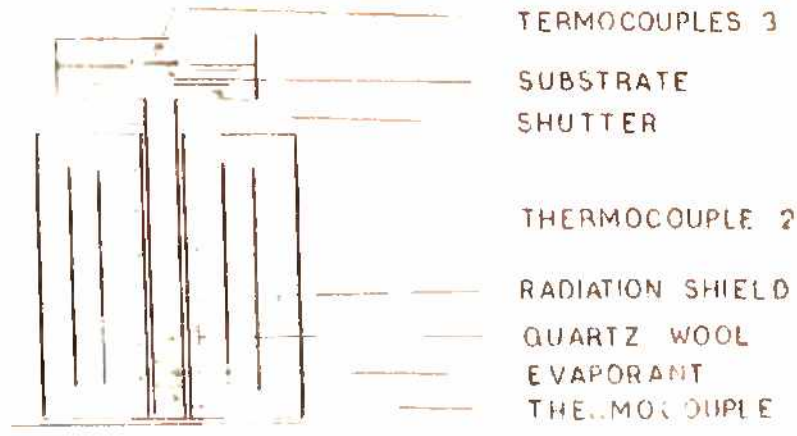 TERMOCOUPLES 3
SUBSTRATE
SHUTTER
THERMOCOUPLE 2
RADIATION SHIELD
QUARTZ WOOL
EVAPORANT